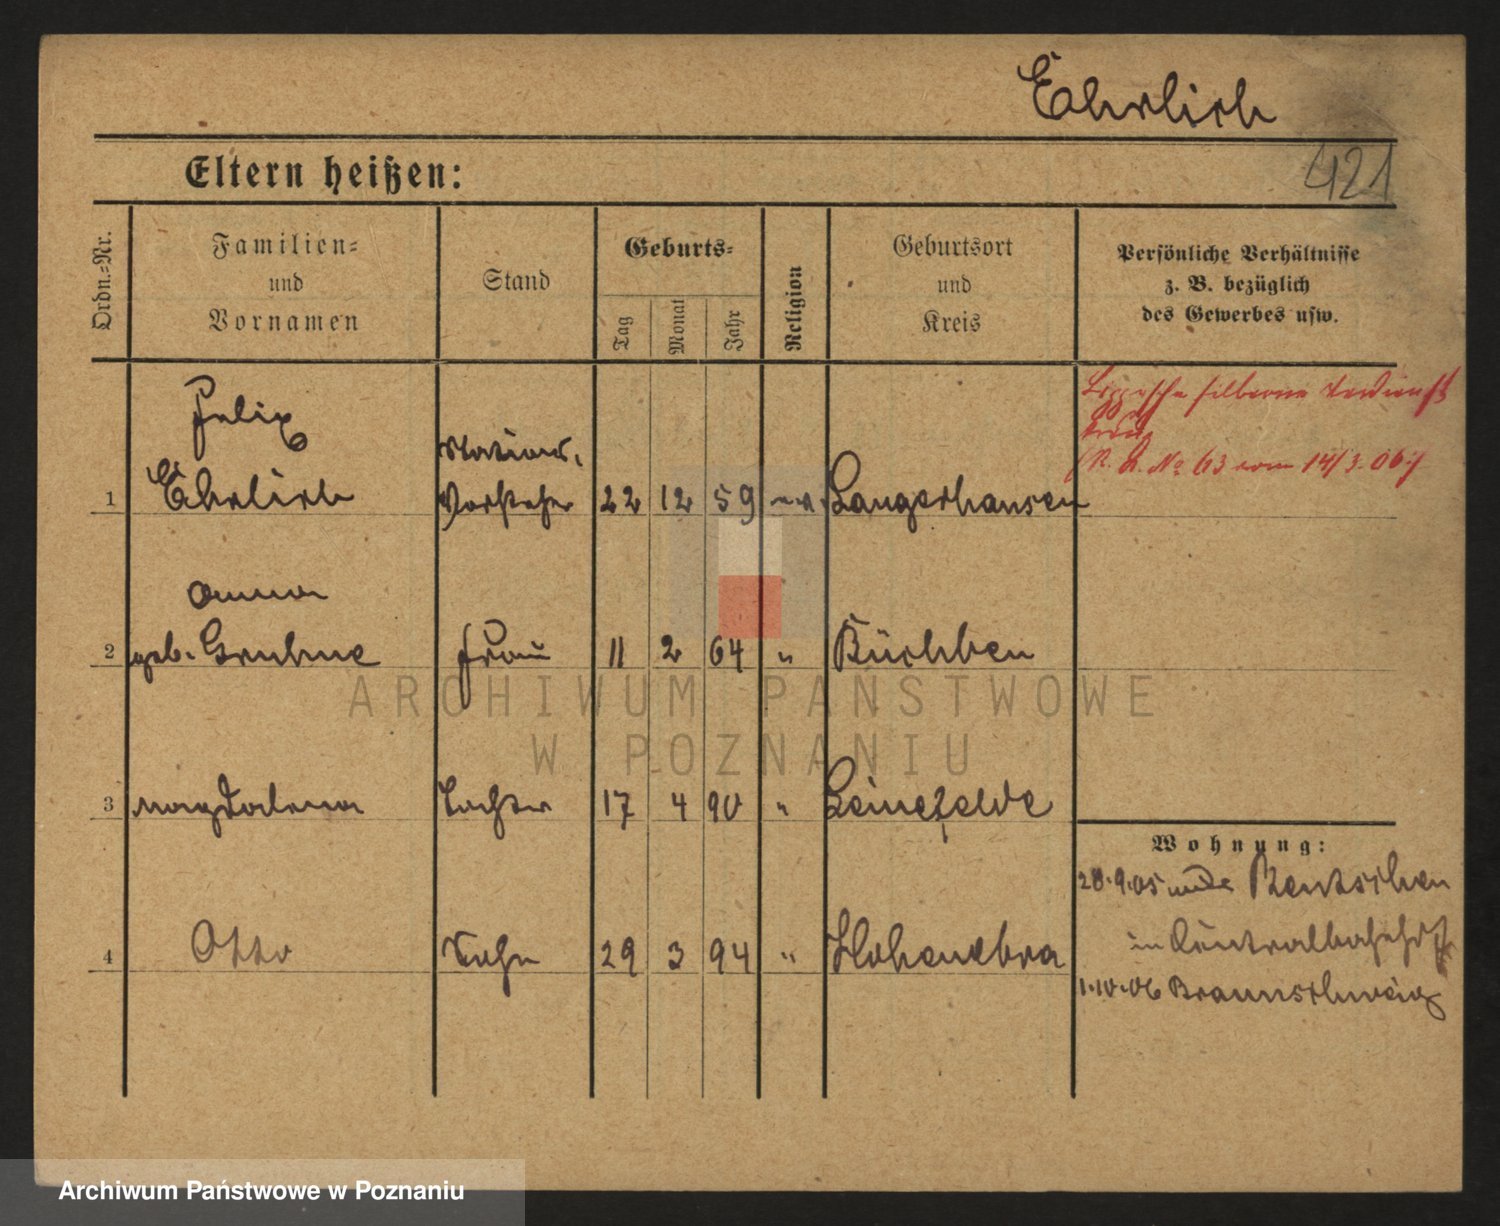 Ehrlich
421
Eltern heißen:
Ordn.-Nr.
Familien-
und
Vornamen
Stand
Geburts-
Tag
Monat
Jahr
Religion
Geburtsort
und
Kreis
Persönliche Verhältnisse
z. B. bezüglich
des Gewerbes usw.
Lippesche silberne Verdienst
(R. A. No 63 vom 14/3. 06.)
Felix
Stations,
1 Ehrlich Vorsteher 22 12 59 Langerhansen
Anna
2 geb. Gruhne Frau 11 2 64 " Büchben
3 Magdalena Tochter 17 4 90 " Leinefelde
4 Otto Sohn 29 3 94 " Hohenebra
Wohnung:
28.9.05 Bentschen
im Centralbahnhof
1.10.06 Braunschweig
ARCHIWUM PAŃSTWOWE
W POZNANIU
Archiwum Państwowe w Poznaniu